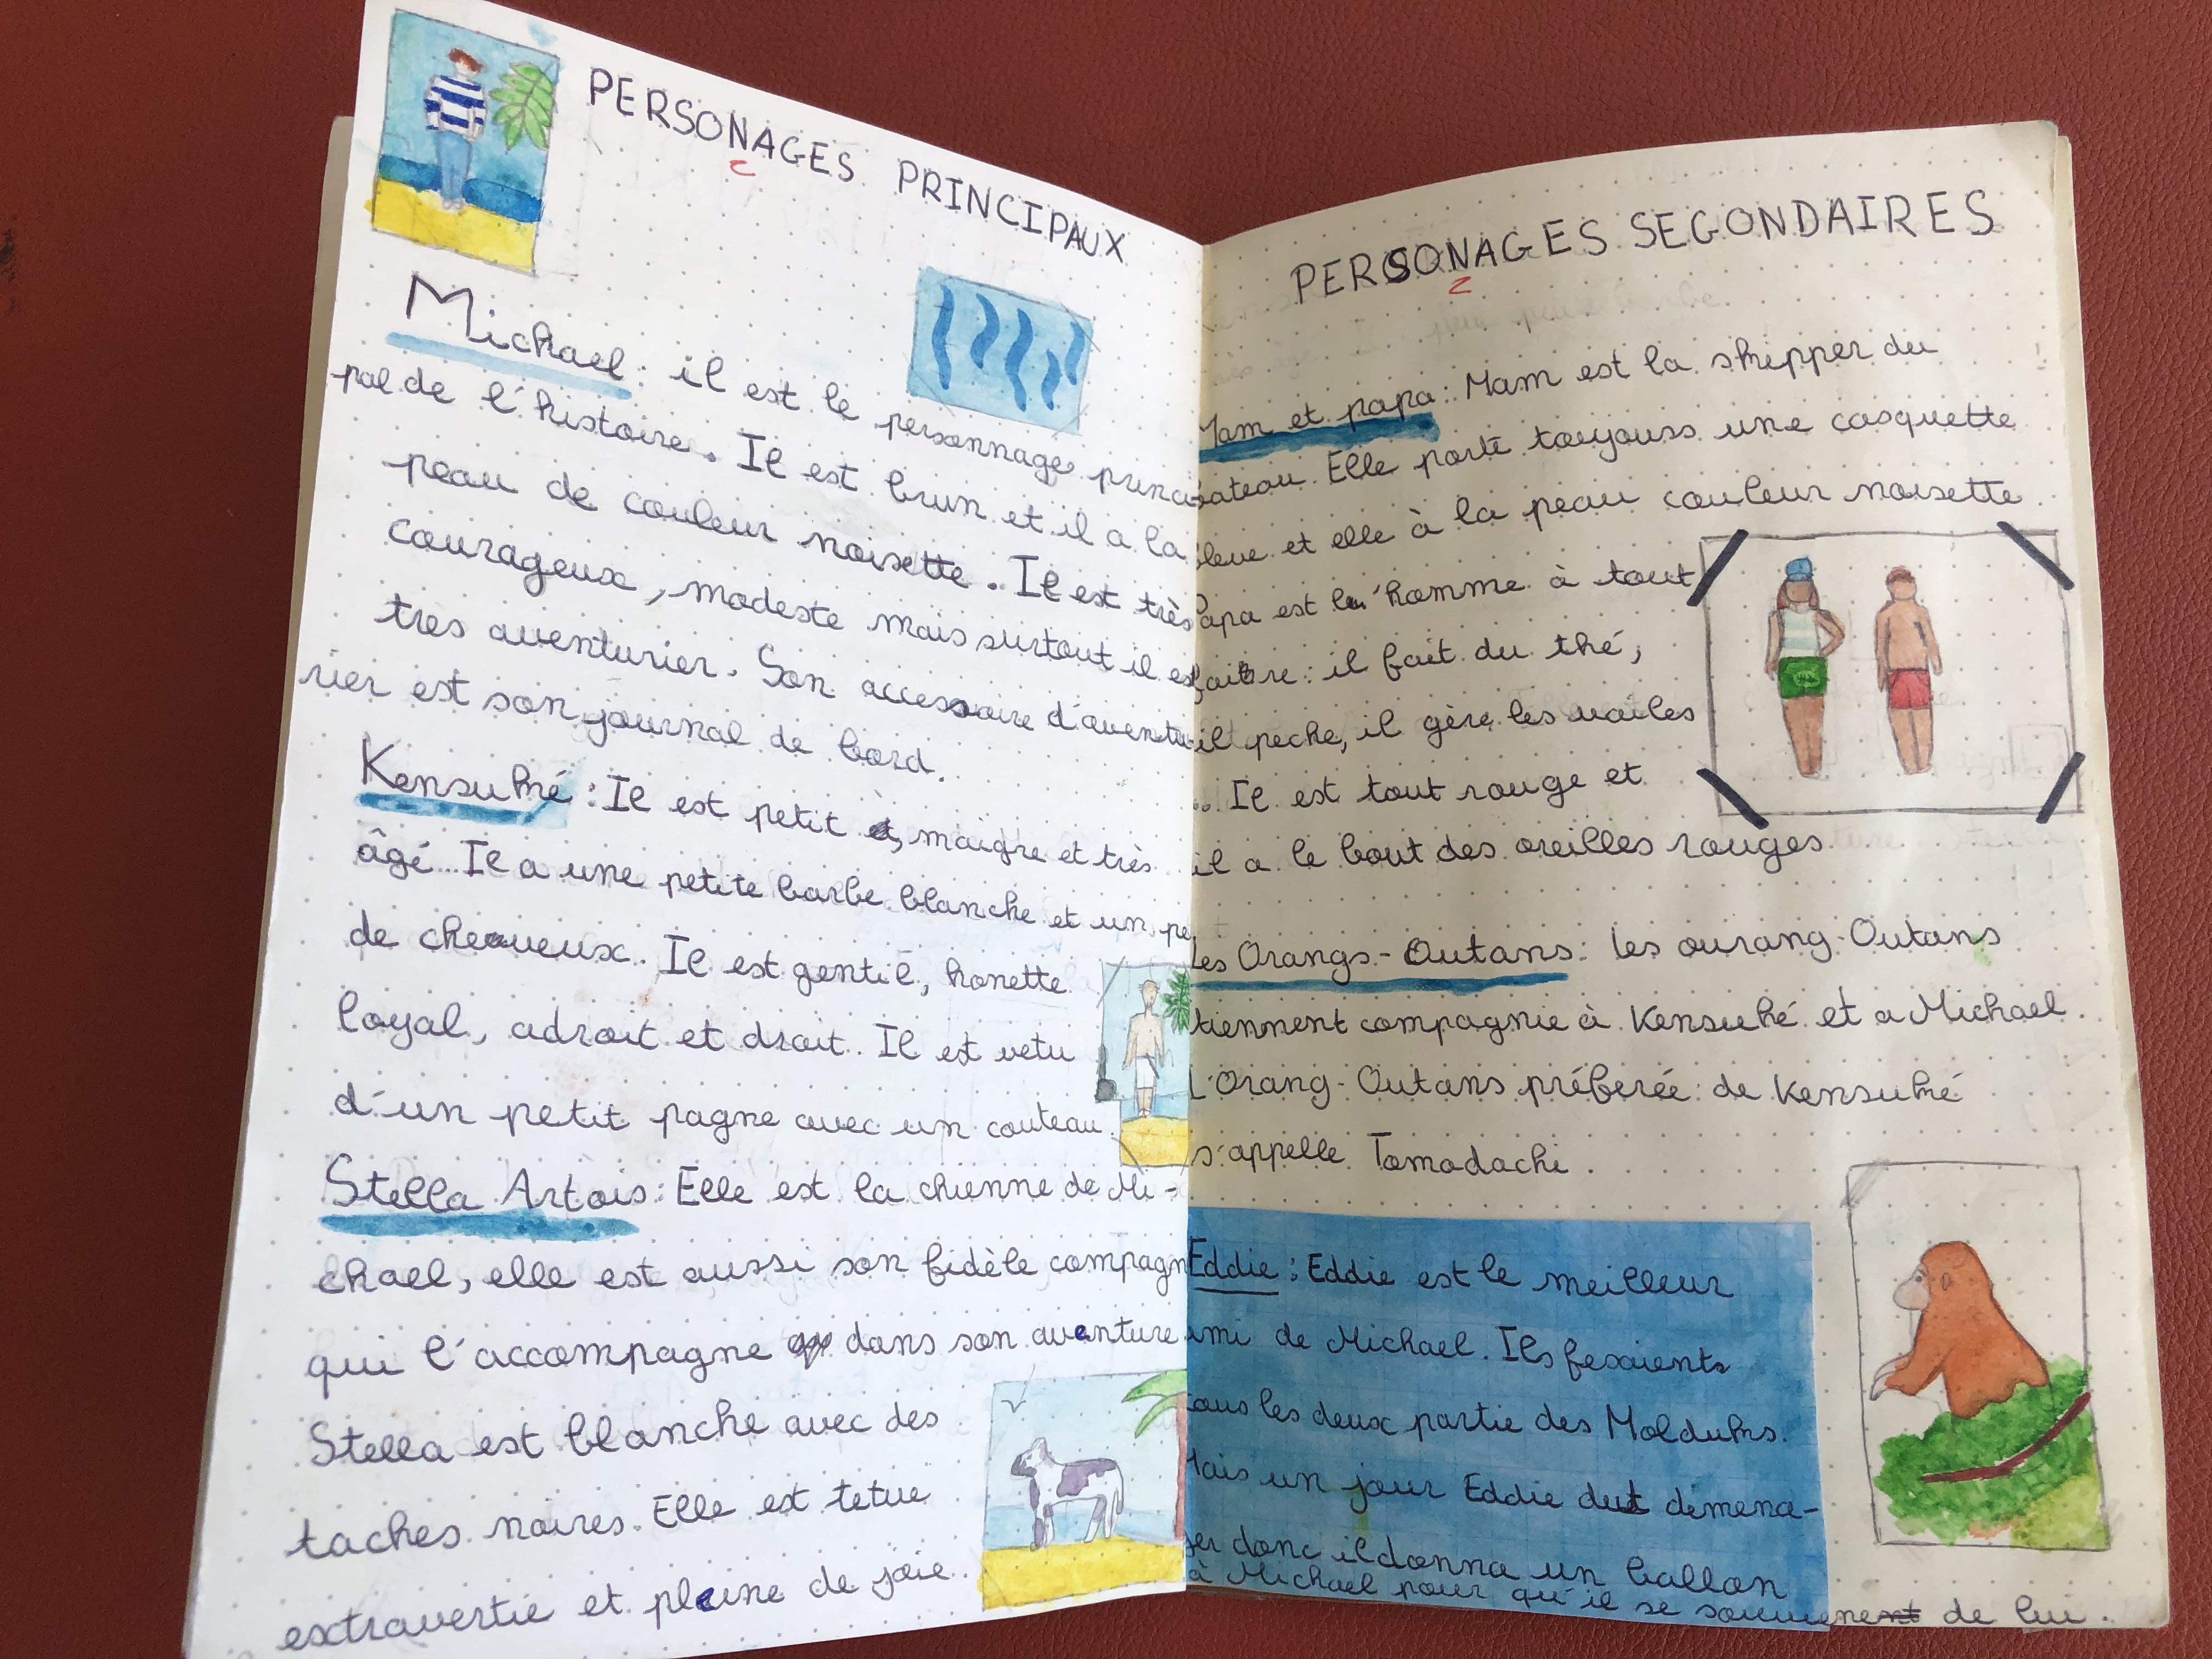 PERSONAGES PRINCIPAUX
Michael : il est le personnage princi-
pal de l'histoire. Il est brun et il a la
peau de couleur noisette. Il est très
courageux, modeste mais surtout il est
très aventurier. Son accessoire d'aventu-
rier est son journal de bord.
Kensuké : Il est petit, maigre et très
âgé. Il a une petite barbe blanche et un pe
de cheveux. Il est gentil, honette
loyal, adroit et droit. Il est vetu
d'un petit pagne avec un couteau.
Stella Artois : Elle est la chienne de Mi-
chael, elle est aussi son fidèle compagn
qui l'accompagne dans son aventure
Stella est blanche avec des
taches noires. Elle est tetue
extravertie et pleine de joie.
PERSONAGES SEGONDAIRES
Mam et papa : Mam est la skipper du
bateau. Elle porte toujours une casquette
bleue et elle à la peau couleur noisette
Papa est l'homme à tout
faire : il fait du thé,
il peche, il gère les voiles
... Il est tout rouge et
il a le bout des oreilles rouges
Les Orangs-Outans : les ourang-Outans
tiennent compagnie à Kensuké et a Michael.
L'Orang-Outans préferée de Kensuké
s'appelle Tomodachi.
Eddie : Eddie est le meilleur
ami de Michael. Ils fesaients
tous les deux partie des Molduks.
Mais un jour Eddie dut démena-
ger donc il donna un ballon
à Michael pour qu'il se souvienne de lui.